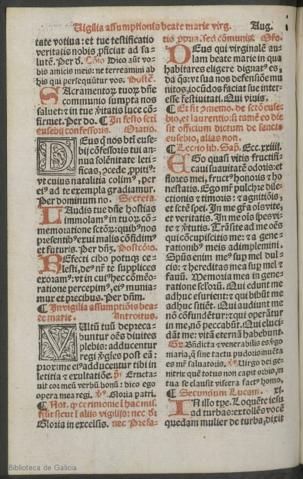 Vigilia assumptionis beate marie virg. Aug.
tate votiua: et tue testificatio
veritatis nobis pficiat ad sa-
lutē. Per d. Cōio Dico aūt vo-
bis amicis meis: ne terreamini ab
his qui persequūtur vos. Postcō.
Sacramentorum tuorum dñe
communio sumpta nos
saluet: et in tue veritatis luce cōfirmet. Per do. In festo scti
eusebij confessoris. Oratio.
Deus q nos btī eusebij
cōfessoris tui an
nua solēnitate leti
ficas, p
cui natalitia colim
ei ad te exempla gradiamur.
Per dominum no. Secreta.
Laudis tue dñe hostias
immolam in tuor cō-
memoratione sctor: quibus nos
presentib exui malis cōfidim
et futuris. Per dñz. Postcōio.
Refecti cibo potuq ce-
lesti, de nr te supplices
exoram: vt in cui hec cōmemo-
ratione percepim, ei munia-
mur et precibus. Per dñm.
In vigilia assumptiōis bea
te marie. Introitus.
Vultū tuū depreca-
buntur oēs diuites
plebis: adducentur
regi vgīes post eā:
proxime ei adducentur tibi in
letitia exultatiōe. Eructa-
uit cor meū verbū bonū: dico ego
opera mea regi. Gloria patri.
Gloria in excelsis. nec Prefa-
Deus qui virginalē au-
lam beate marie in qua
habitares eligere dignat es,
da qs: vt sua nos defensiōe mu
nitos, iocūdos facias sue inter-
esse festiuitati. Qui viuis.
sit officium dictum de sanctis
eusebio, alias non.
Lectio lib. Sap. Ecc. xxiiij.
Ego quasi vitis fructifi-
caui suauitatē odoris: et
flores mei, fruct honoris et ho
nestatis. Ego mr pulchre dile-
ctionis et timoris: et agnitiōis
et sctē spei. In me grā oīs vite,
et veritatis. In me oīs spes vi-
te et vtutis. Trāsite ad me oēs
qui cōcupiscitis me: et a gene-
rationib meis adimplemini.
Spūs enim me sup mel dul-
cis: et hereditas mea sup mel et
fauū. Memoria mea in gene-
ratione seclorū. Qui edunt me
adhuc esurient: et qui bibūt me
adhuc sitiēt. Qui audiunt me
nō cōfundētur: et qui operāt
in me, nō peccabūt. Qui eluci-
dāt me: vitā eternā habebunt.
Gr. Bñdicta et venerabilis es vgo
maria, q sine tactu pudoris inuēta
es mr saluatoris. Virgo dei ge-
nitrix quē totus non capit orbis, in
tua se clausit viscera fact homo.
Secundum Lucam. xi.
In illo tpe. Loquēte iesu
ad turbas: extollēs vocē
quedam mulier de turba, dixit
Biblioteca de Galicia